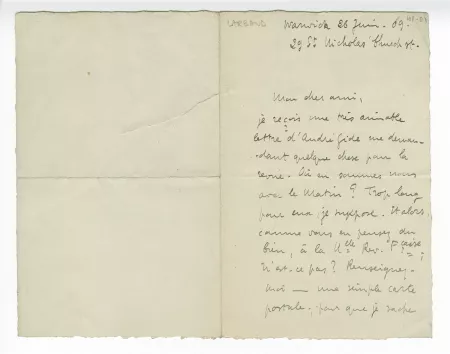 LARBAUD
Warwick 26 Juin. 09.
29 St Nicholas' Church St.
Mon cher ami,
je reçois une très aimable
lettre d'André Gide me deman-
dant quelque chose pour la
revue. Où en sommes nous
avec le Matin? Trop long
pour eux, je suppose. Et alors,
comme vous en pensez du
bien, à la Gde Rev.
n'est-ce pas? Renseignez-
moi — une simple carte
postale, pour que je sache